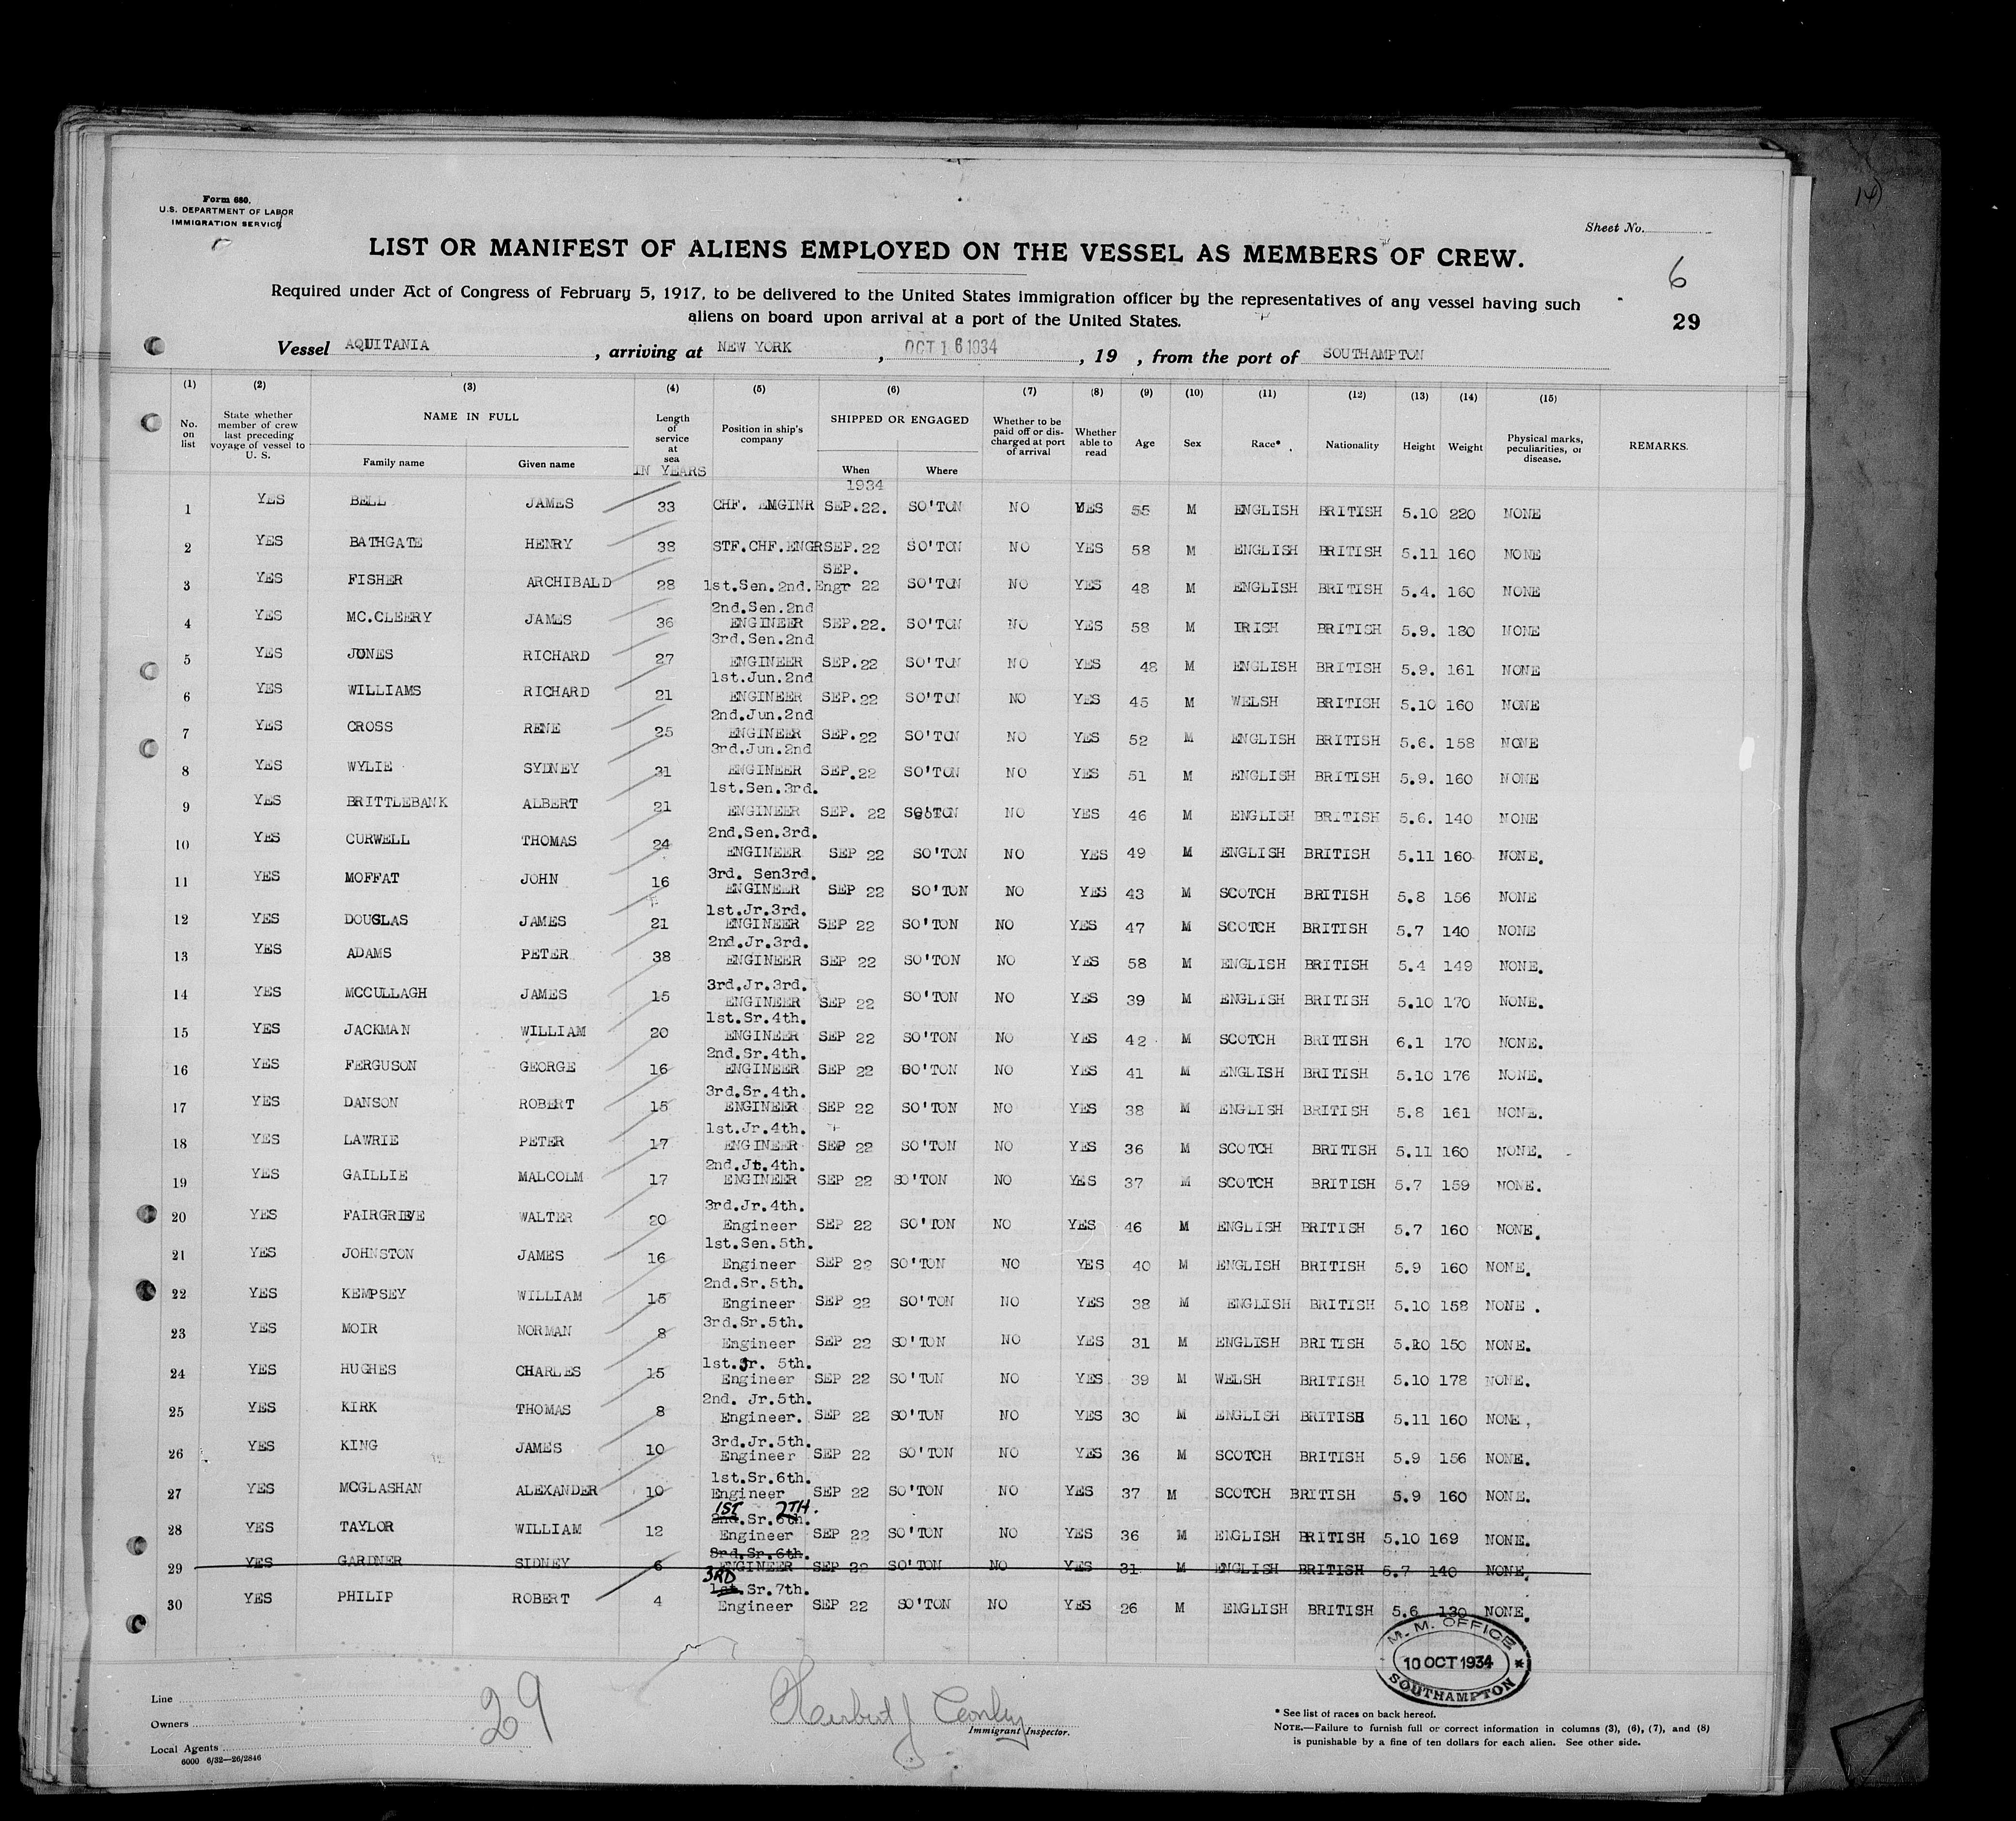 14)
Form 680.
U.S. DEPARTMENT OF LABOR
IMMIGRATION SERVICE
Sheet No.
LIST OR MANIFEST OF ALIENS EMPLOYED ON THE VESSEL AS MEMBERS OF CREW.
6
Required under Act of Congress of February 5, 1917, to be delivered to the United States immigration officer by the representatives of any vessel having such
aliens on board upon arrival at a port of the United States.
29
Vessel AQUITANIA, arriving at NEW YORK, OCT 16 1934, 19 , from the port of SOUTHAMPTON
(1) (2) (3) (4) (5) (6) (7) (8) (9) (10) (11) (12) (13) (14) (15)
No. on list
State whether member of crew last preceding voyage of vessel to U. S.
NAME IN FULL
Family name Given name
Length of service at sea
IN YEARS
Position in ship's company
SHIPPED OR ENGAGED
When Where
1934
Whether to be paid off or discharged at port of arrival
Whether able to read
Age Sex Race* Nationality Height Weight
Physical marks, peculiarities, or disease.
REMARKS.
1 YES BELL JAMES 33 CHF. EMGINR SEP.22. SO'TON NO YES 55 M ENGLISH BRITISH 5.10 220 NONE
2 YES BATHGATE HENRY 38 STF.CHF.ENGR SEP.22 SO'TON NO YES 58 M ENGLISH BRITISH 5.11 160 NONE
3 YES FISHER ARCHIBALD 28 1st.Sen.2nd.Engr SEP. 22 SO'TON NO YES 48 M ENGLISH BRITISH 5.4. 160 NONE
4 YES MC.CLEERY JAMES 36 2nd.Sen.2nd ENGINEER SEP.22. SO'TON NO YES 58 M IRISH BRITISH 5.9. 180 NONE
5 YES JONES RICHARD 27 3rd.Sen.2nd ENGINEER SEP.22 SO'TON NO YES 48 M ENGLISH BRITISH 5.9. 161 NONE
6 YES WILLIAMS RICHARD 21 1st.Jun.2nd ENGINEER SEP.22 SO'TON NO YES 45 M WELSH BRITISH 5.10 160 NONE
7 YES CROSS RENE 25 2nd.Jun.2nd ENGINEER SEP.22 SO'TON NO YES 52 M ENGLISH BRITISH 5.6. 158 NONE
8 YES WYLIE SYDNEY 31 3rd.Jun.2nd ENGINEER SEP.22 SO'TON NO YES 51 M ENGLISH BRITISH 5.9. 160 NONE
9 YES BRITTLEBANK ALBERT 21 1st.Sen.3rd. ENGINEER SEP. 22 SO'TON NO YES 46 M ENGLISH BRITISH 5.6. 140 NONE
10 YES CURWELL THOMAS 24 2nd.Sen.3rd. ENGINEER SEP 22 SO'TON NO YES 49 M ENGLISH BRITISH 5.11 160 NONE.
11 YES MOFFAT JOHN 16 3rd. Sen3rd. ENGINEER SEP 22 SO'TON NO YES 43 M SCOTCH BRITISH 5.8 156 NONE
12 YES DOUGLAS JAMES 21 1st.Jr.3rd. ENGINEER SEP 22 SO'TON NO YES 47 M SCOTCH BRITISH 5.7 140 NONE
13 YES ADAMS PETER 38 2nd.Jr.3rd. ENGINEER SEP 22 SO'TON NO YES 58 M ENGLISH BRITISH 5.4 149 NONE.
14 YES MCCULLAGH JAMES 15 3rd.Jr.3rd. ENGINEER SEP 22 SO'TON NO YES 39 M ENGLISH BRITISH 5.10 170 NONE.
15 YES JACKMAN WILLIAM 20 1st.Sr.4th. ENGINEER SEP 22 SO'TON NO YES 42 M SCOTCH BRITISH 6.1 170 NONE.
16 YES FERGUSON GEORGE 16 2nd.Sr.4th. ENGINEER SEP 22 SO'TON NO YES 41 M ENGLISH BRITISH 5.10 176 NONE.
17 YES DANSON ROBERT 15 3rd.Sr.4th. ENGINEER SEP 22 SO'TON NO YES 38 M ENGLISH BRITISH 5.8 161 NONE.
18 YES LAWRIE PETER 17 1st.Jr.4th. ENGINEER SEP 22 SO'TON NO YES 36 M SCOTCH BRITISH 5.11 160 NONE.
19 YES GAILLIE MALCOLM 17 2nd.Jr.4th. ENGINEER SEP 22 SO'TON NO YES 37 M SCOTCH BRITISH 5.7 159 NONE.
20 YES FAIRGRIEVE WALTER 20 3rd.Jr.4th. Engineer SEP 22 SO'TON NO YES 46 M ENGLISH BRITISH 5.7 160 NONE.
21 YES JOHNSTON JAMES 16 1st.Sen.5th. Engineer SEP 22 SO'TON NO YES 40 M ENGLISH BRITISH 5.9 160 NONE.
22 YES KEMPSEY WILLIAM 15 2nd.Sr.5th. Engineer SEP 22 SO'TON NO YES 38 M ENGLISH BRITISH 5.10 158 NONE .
23 YES MOIR NORMAN 8 3rd.Sr.5th. Engineer SEP 22 SO'TON NO YES 31 M ENGLISH BRITISH 5.10 150 NONE.
24 YES HUGHES CHARLES 15 1st.Jr. 5th. Engineer SEP 22 SO'TON NO YES 39 M WELSH BRITISH 5.10 178 NONE.
25 YES KIRK THOMAS 8 2nd. Jr.5th. Engineer. SEP 22 SO'TON NO YES 30 M ENGLISH BRITISH 5.11 160 NONE,
26 YES KING JAMES 10 3rd.Jr.5th. Engineer SEP 22 SO'TON NO YES 36 M SCOTCH BRITISH 5.9 156 NONE.
27 YES MCGLASHAN ALEXANDER 10 1st.Sr.6th. Engineer SEP 22 SO'TON NO YES 37 M SCOTCH BRITISH 5.9 160 NONE.
1ST 7TH.
28 YES TAYLOR WILLIAM 12 2nd.Sr.6th. Engineer SEP 22 SO'TON NO YES 36 M ENGLISH BRITISH 5.10 169 NONE.
29 YES GARDNER SIDNEY 6 3rd.Sr.6th. ENGINEER SEP 22 SO'TON NO YES 31 M ENGLISH BRITISH 5.7 140 NONE.
3RD
30 YES PHILIP ROBERT 4 1st.Sr.7th. Engineer SEP 22 SO'TON NO YES 26 M ENGLISH BRITISH 5.6 130 NONE.
M. M. OFFICE
10 OCT 1934 *
SOUTHAMPTON
Line
Owners
Local Agents
6000 6/32—26/2846
29
Herbert J Conley
Immigrant Inspector.
* See list of races on back hereof.
NOTE.—Failure to furnish full or correct information in columns (3), (6), (7), and (8)
is punishable by a fine of ten dollars for each alien. See other side.